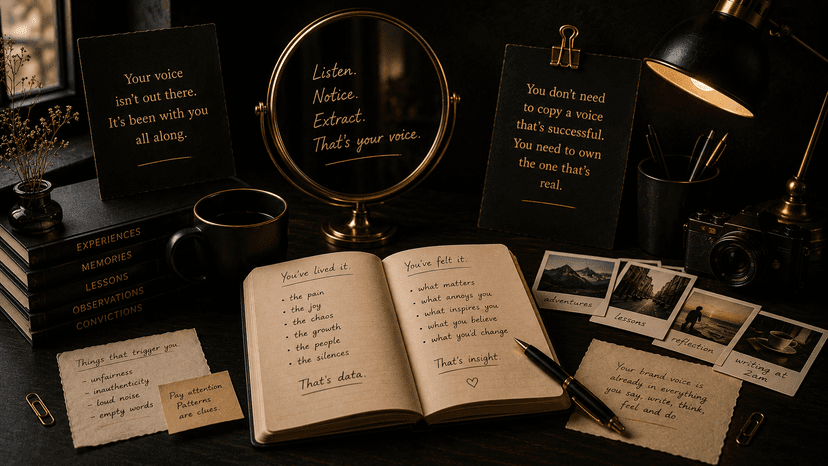 Your voice
isn't out there.
It's been with you
all along.
Listen.
Notice.
Extract.
That's your voice.
You don't need
to copy a voice
that's successful.
You need to own
the one that's
real.
EXPERIENCES
MEMORIES
LESSONS
OBSERVATIONS
CONVICTIONS
You've lived it.
• the pain
• the joy
• the chaos
• the growth
• the people
• the silences
That's data.
You've felt it.
• what matters
• what annoys you
• what inspires you
• what you believe
• what you'd change
That's insight.
adventures
lessons
reflection
writing at
2am
Things that trigger you.
- unfairness
- inauthenticity
- loud noise
- empty words
Pay attention.
Patterns
are clues.
Your brand voice is
already in everything
you say, write, think,
feel and do.